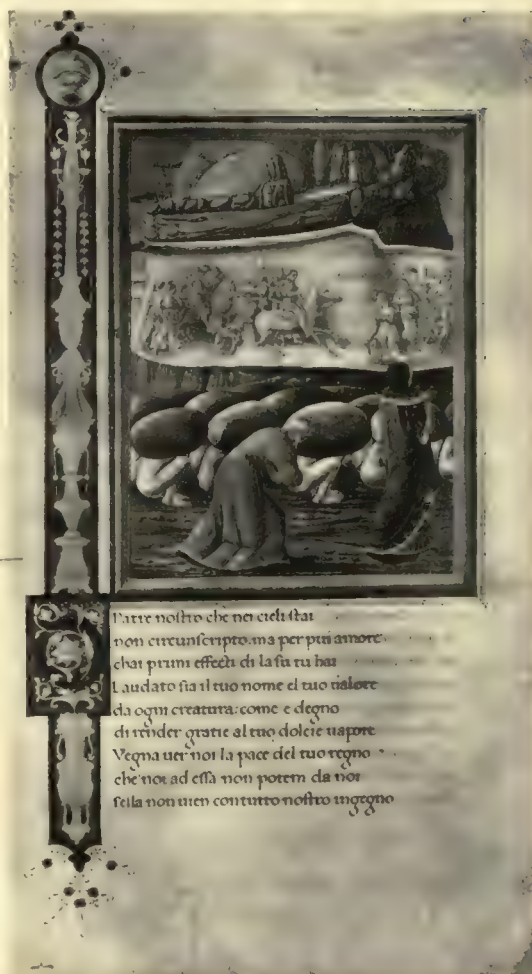 Patre nostro che nei cieli stai
non circunscripto. ma per piu amore
chai primi effecti di la su tu hai
Laudato sia il tuo nome el tuo ualore
da ogni creatura: come e degno
di render gratie al tuo dolcie uapore
Vegna uer noi la pace del tuo regno
che noi ad essa non potem da noi
sella non uien con tutto nostro ingegno